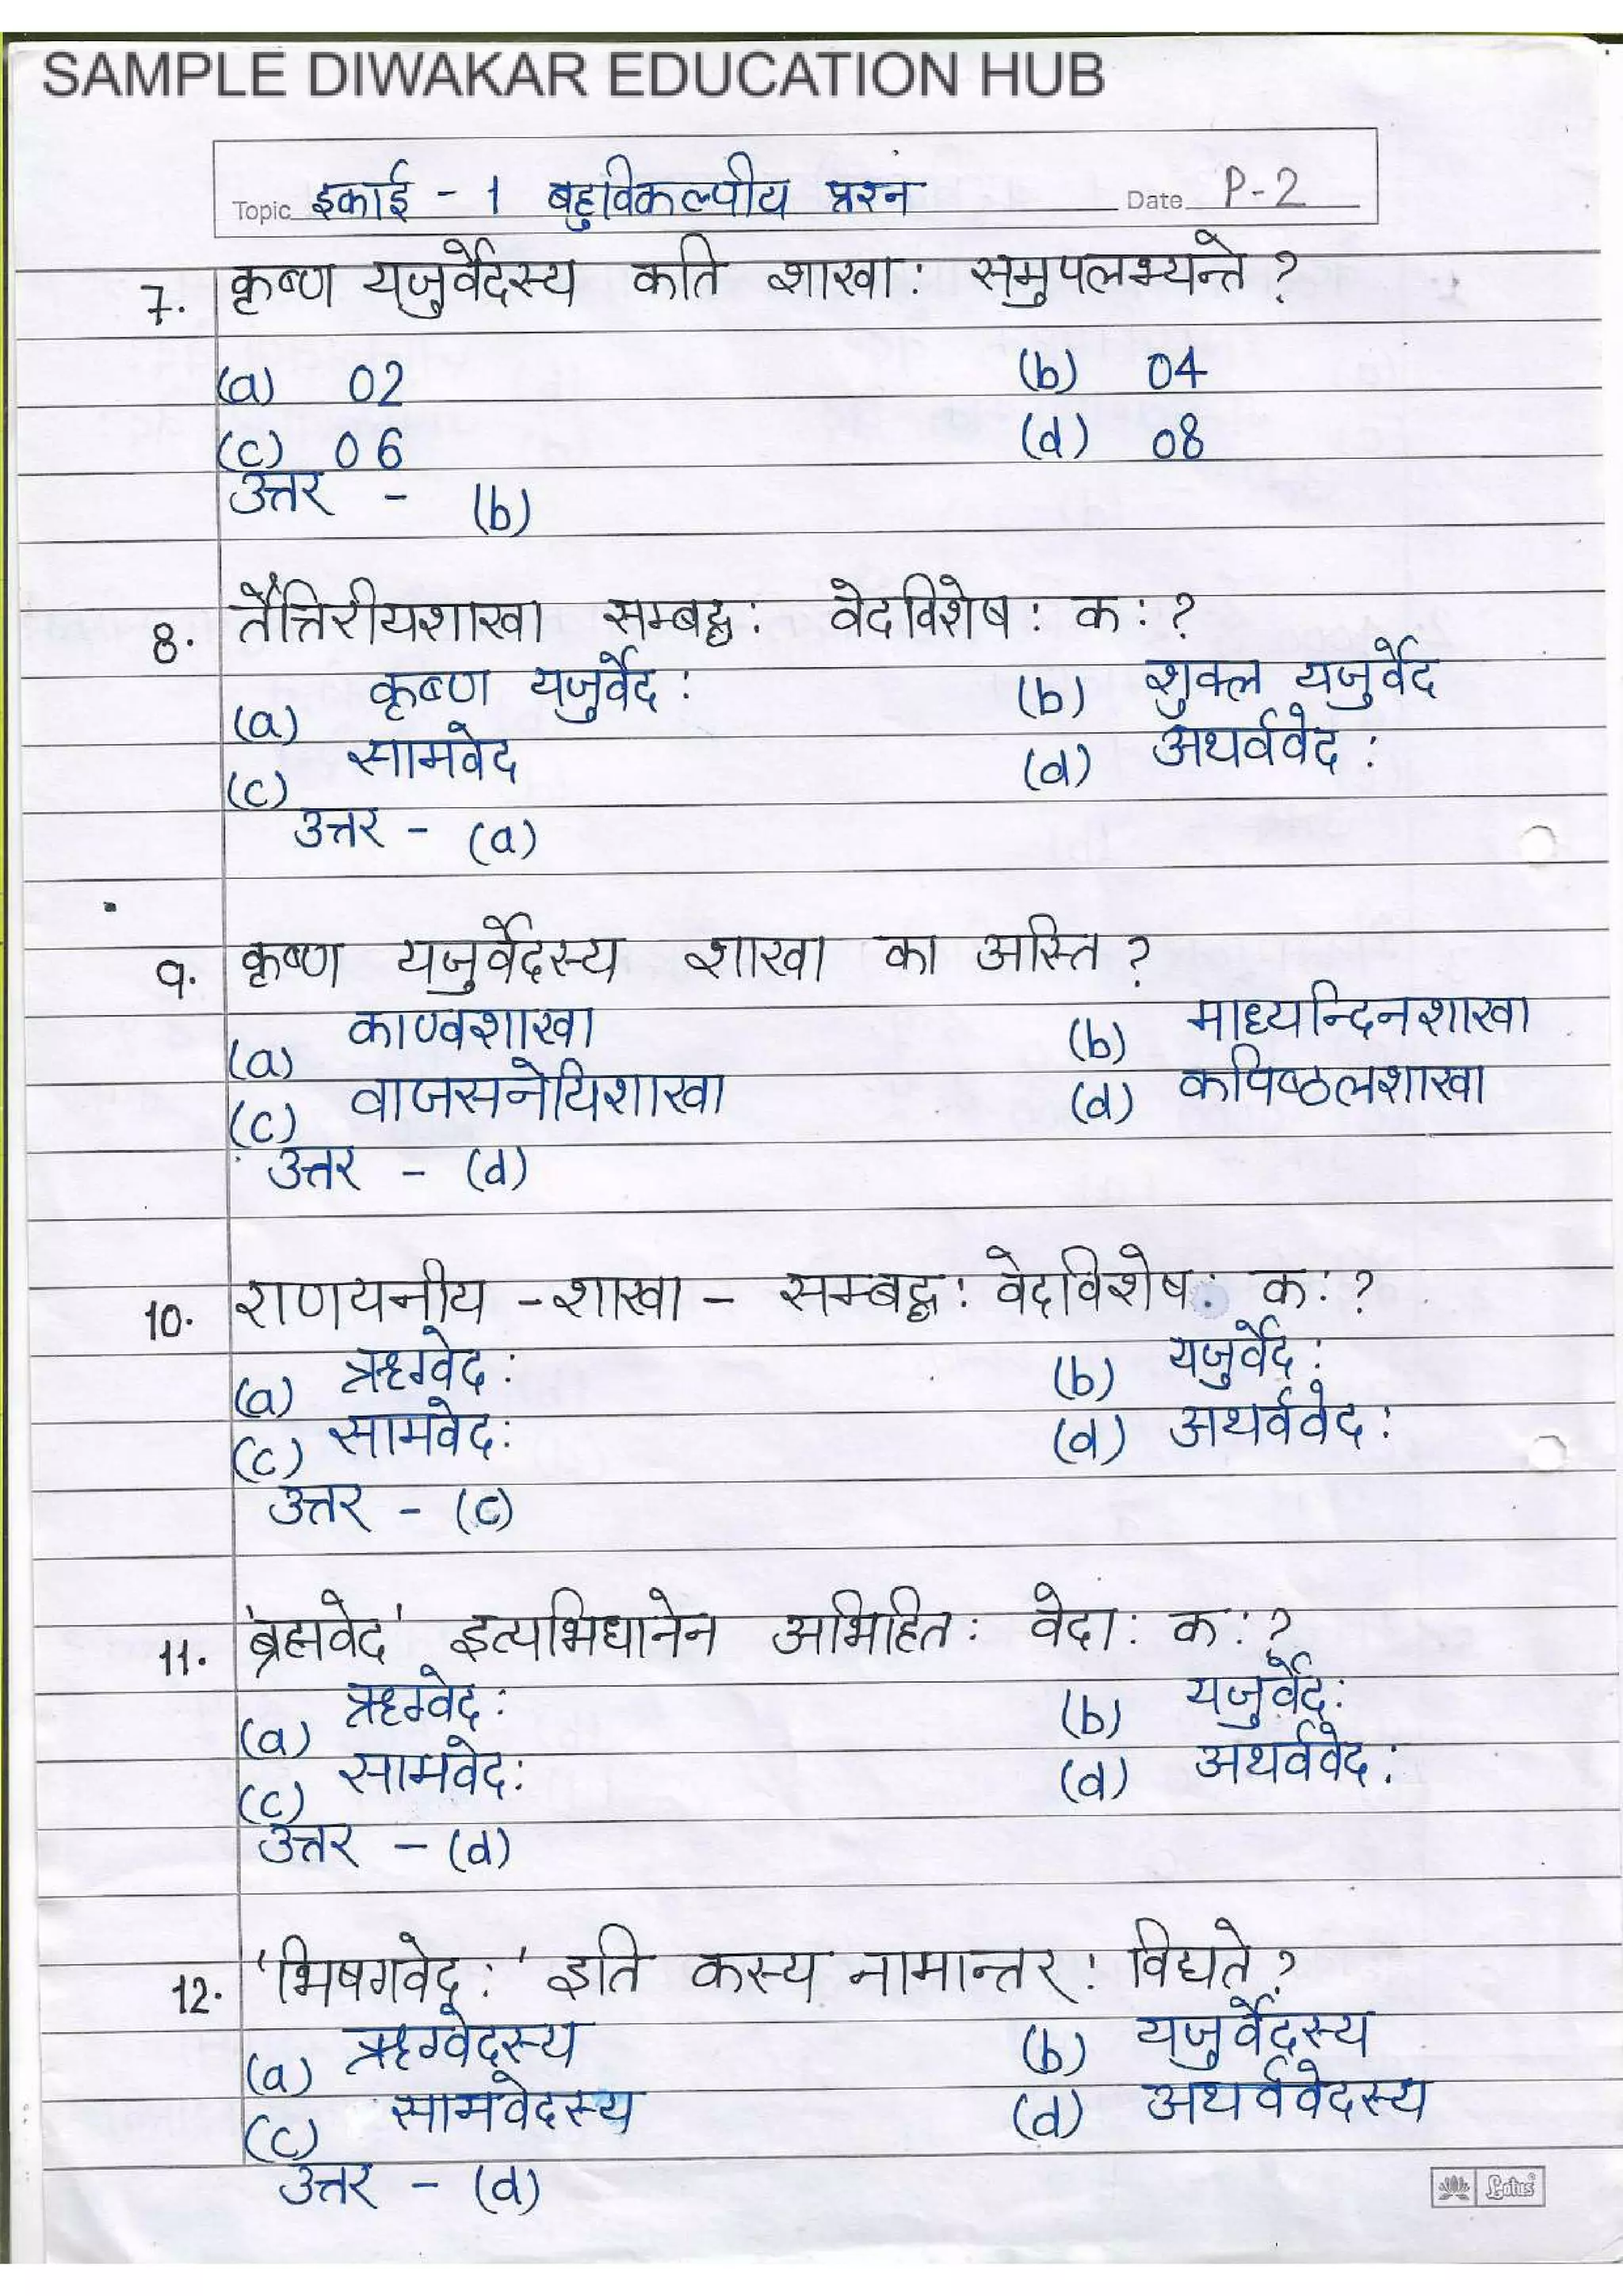 SAMPLE DIWAKAR EDUCATION HUB
Topic इकाई - 1 बहुविकल्पीय प्रश्न Date P-2
7. कृष्ण यजुर्वेदस्य कति शाखा: समुपलभ्यन्ते ?
(a) 02 (b) 04
(c) 06 (d) 08
उत्तर - (b)
8. तैत्तिरीयशाखा सम्बद्ध: वेदविशेष: क: ?
(a) कृष्ण यजुर्वेद: (b) शुक्ल यजुर्वेद
(c) सामवेद (d) अथर्ववेद:
उत्तर - (a)
9. कृष्ण यजुर्वेदस्य शाखा का अस्ति ?
(a) काण्वशाखा (b) माध्यन्दिनशाखा
(c) वाजसनेयिशाखा (d) कपिष्ठलशाखा
उत्तर - (d)
10. राणयनीय - शाखा - सम्बद्ध: वेदविशेष: क: ?
(a) ऋग्वेद: (b) यजुर्वेद:
(c) सामवेद: (d) अथर्ववेद:
उत्तर - (c)
11. 'ब्रह्मवेद' इत्यभिधानेन अभिहित: वेदा: क: ?
(a) ऋग्वेद: (b) यजुर्वेद:
(c) सामवेद: (d) अथर्ववेद:
उत्तर - (d)
12. 'भिषगवेद:' इति कस्य नामान्तर: विद्यते ?
(a) ऋग्वेदस्य (b) यजुर्वेदस्य
(c) सामवेदस्य (d) अथर्ववेदस्य
उत्तर - (d)
Lotus